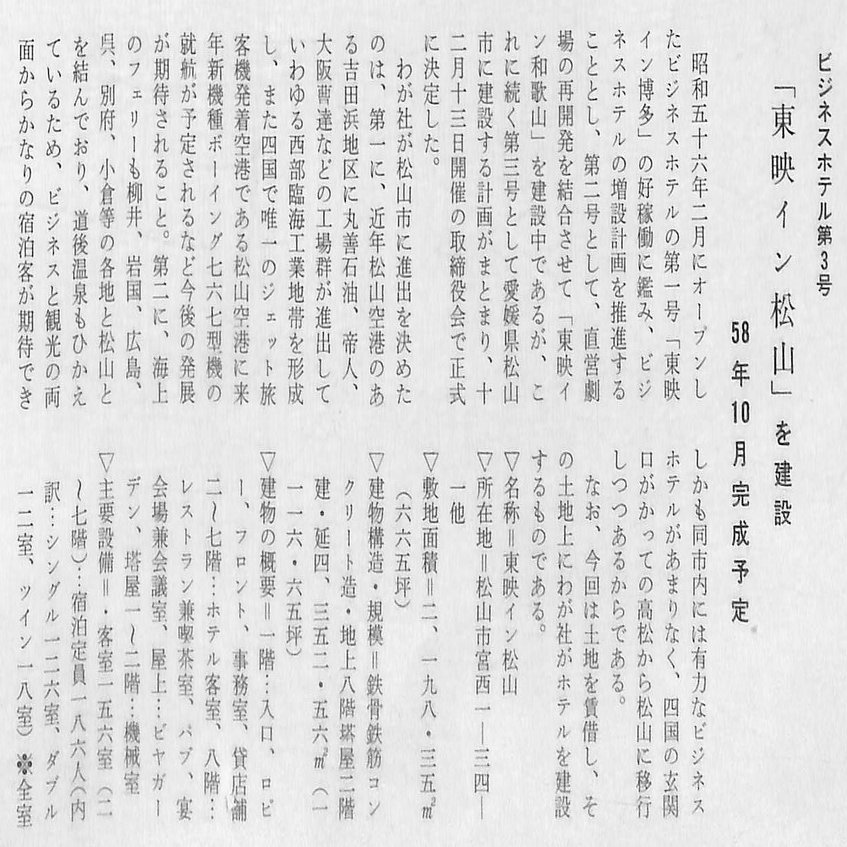 ビジネスホテル第3号
「東映イン松山」を建設
58年10月完成予定
昭和五十六年二月にオープンし
たビジネスホテルの第一号「東映
イン博多」の好稼働に鑑み、ビジ
ネスホテルの増設計画を推進する
こととし、第二号として、直営劇
場の再開発を結合させて「東映イ
ン和歌山」を建設中であるが、こ
れに続く第三号として愛媛県松山
市に建設する計画がまとまり、十
二月十三日開催の取締役会で正式
に決定した。
わが社が松山市に進出を決めた
のは、第一に、近年松山空港のあ
る吉田浜地区に丸善石油、帝人、
大阪曹達などの工場群が進出して
いわゆる西部臨海工業地帯を形成
し、また四国で唯一のジェット旅
客機発着空港である松山空港に来
年新機種ボーイング七六七型機の
就航が予定されるなど今後の発展
が期待されること。第二に、海上
のフェリーも柳井、岩国、広島、
呉、別府、小倉等の各地と松山と
を結んでおり、道後温泉もひかえ
ているため、ビジネスと観光の両
面からかなりの宿泊客が期待でき
しかも同市内には有力なビジネス
ホテルがあまりなく、四国の玄関
口がかっての高松から松山に移行
しつつあるからである。
なお、今回は土地を賃借し、そ
の土地上にわが社がホテルを建設
するものである。
▽名称＝東映イン松山
▽所在地＝松山市宮西一―三四―
一他
▽敷地面積＝二、一九八・三五㎡
（六六五坪）
▽建物構造・規模＝鉄骨鉄筋コン
クリート造・地上八階塔屋二階
建・延四、三五二・五六㎡（一
一一六・六五坪）
▽建物の概要＝一階…入口、ロビ
ー、フロント、事務室、貸店舗
二〜七階…ホテル客室、八階…
レストラン兼喫茶室、パブ、宴
会場兼会議室、屋上…ビヤガー
デン、塔屋一〜二階…機械室
▽主要設備＝・客室一五六室（二
〜七階）…宿泊定員一八六人（内
訳…シングル一二六室、ダブル
一二室、ツイン一八室）※全室